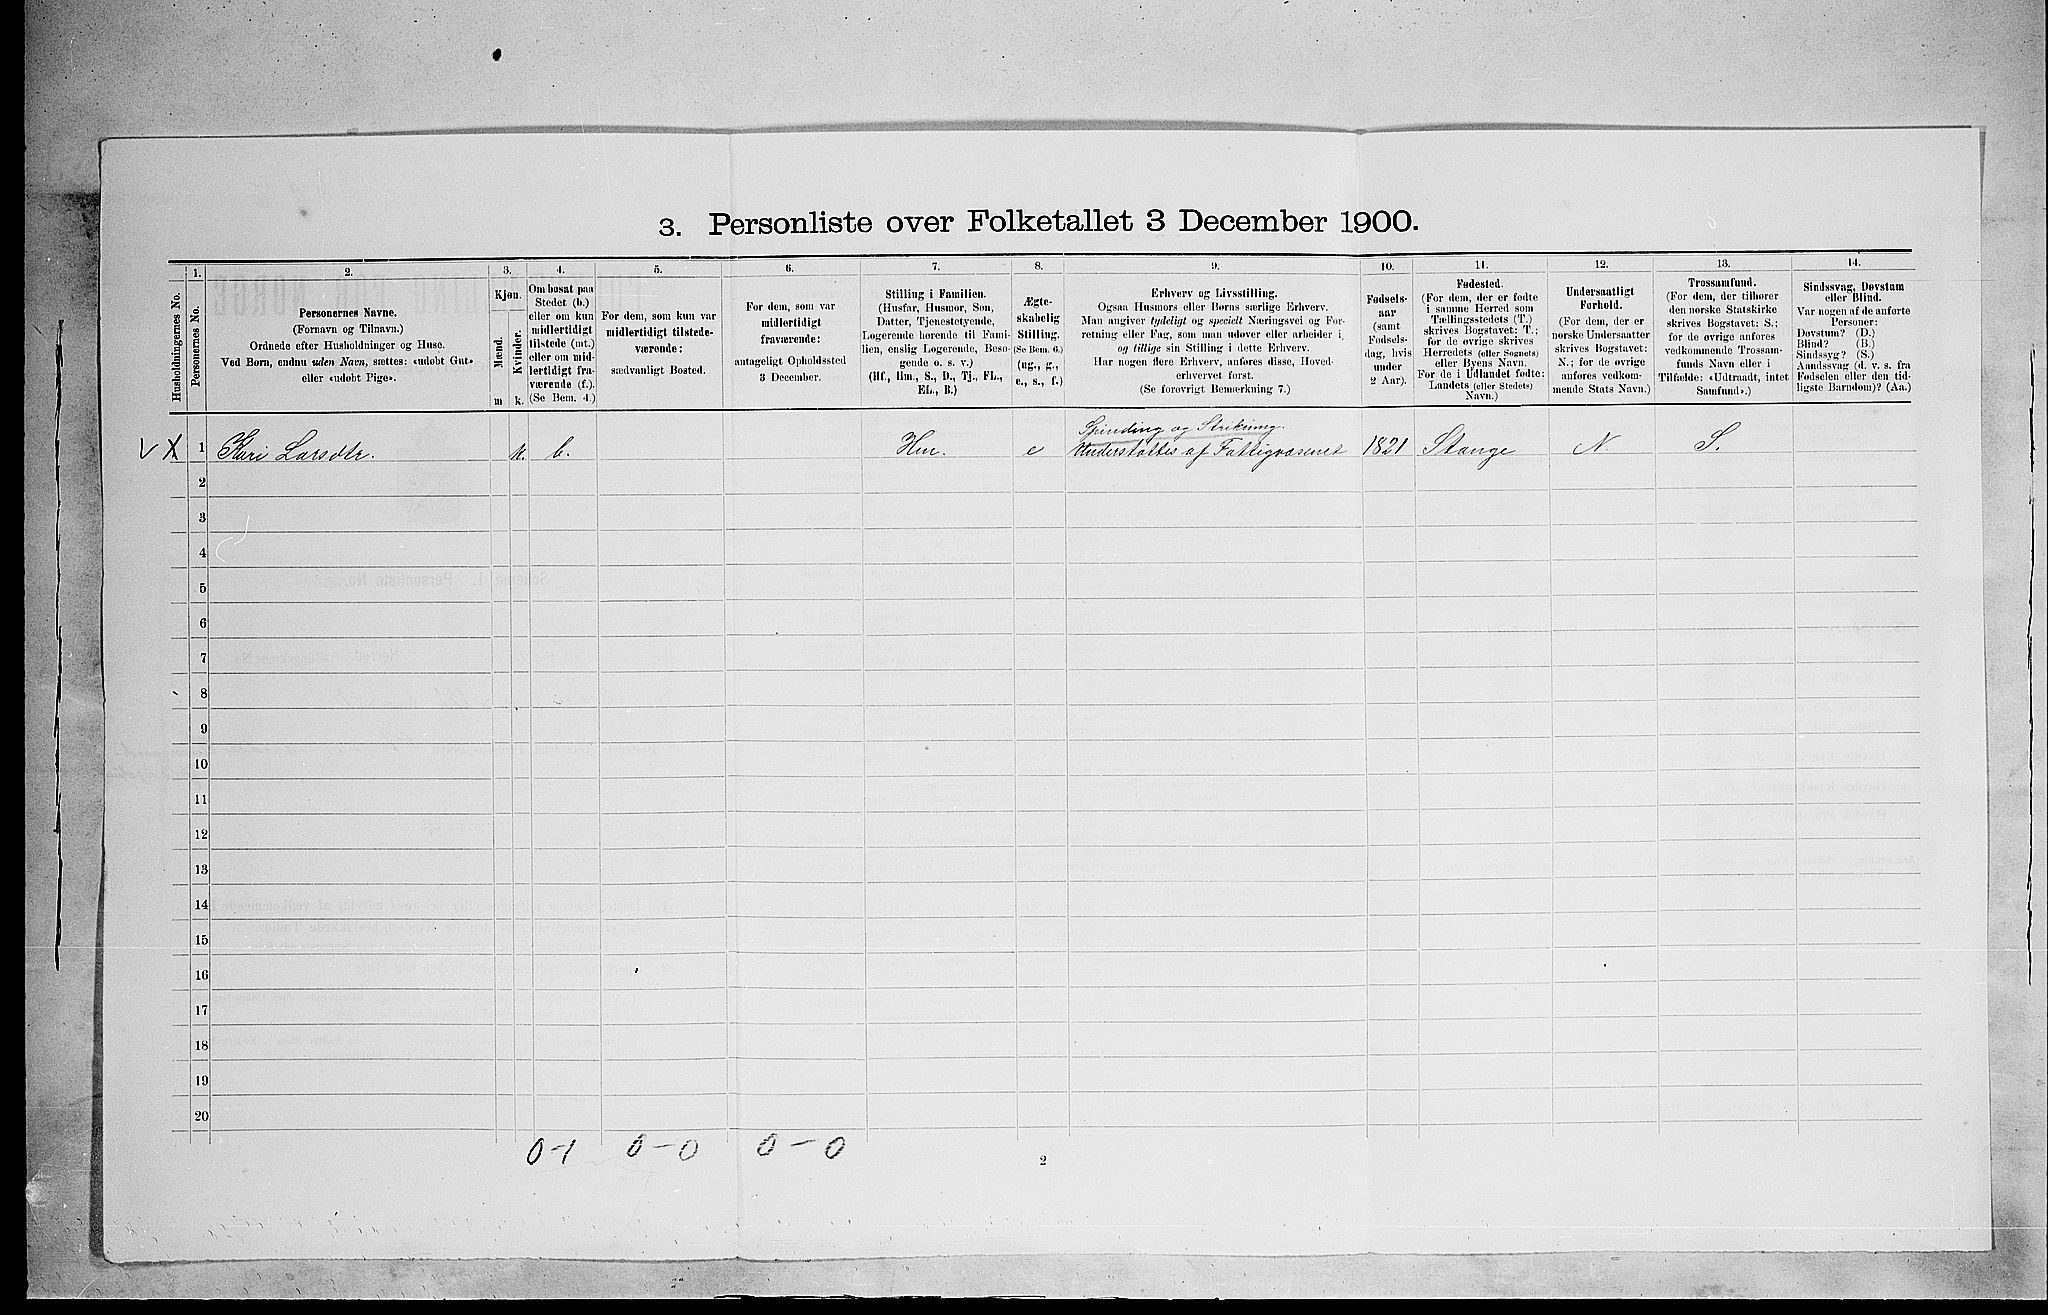 3. Personliste over Folketallet 3 December 1900.
Husholdningernes No.
1.
Personernes No.
2.
Personernes Navne.
(Fornavn og Tilnavn.)
Ordnede efter Husholdninger og Huse.
Ved Børn, endnu uden Navn, sættes: «udøbt Gut»
eller «udøbt Pige».
3.
Kjøn.
Mænd.
Kvinder.
m
k.
4.
Om bosat paa
Stedet (b.)
eller om kun
midlertidigt
tilstede (mt.)
eller om mid-
lertidigt fra-
værende (f.).
(Se Bem. 4.)
5.
For dem, som kun var
midlertidigt tilstede-
værende:
sædvanligt Bosted.
6.
For dem, som var
midlertidigt
fraværende:
antageligt Opholdssted
3 December.
7.
Stilling i Familien.
(Husfar, Husmor, Søn,
Datter, Tjenestetyende,
Logerende hørende til Fami-
lien, enslig Logerende, Besø-
gende o. s. v.)
(Hf., Hm., S., D., Tj., FL.,
EL., B.)
8.
Ægte-
skabelig
Stilling.
(Se Bem. 6.)
(ug., g.,
e., s., f.)
9.
Erhverv og Livsstilling.
Ogsaa Husmors eller Børns særlige Erhverv.
Man angiver tydeligt og specielt Næringsvei og For-
retning eller Fag, som man udøver eller arbeider i,
og tillige sin Stilling i dette Erhverv.
Har nogen flere Erhverv, anføres disse, Hoved-
erhvervet først.
(Se forøvrigt Bemærkning 7.)
10.
Fødsels-
aar
(samt
Fødsels-
dag, hvis
under
2 Aar).
11.
Fødested.
(For dem, der er fødte
i samme Herred som
Tællingsstedets (T.)
skrives Bogstavet: T.;
for de øvrige skrives
Herredets (eller Sognets)
eller Byens Navn.
For de i Udlandet fødte:
Landets (eller Stedets)
Navn.)
12.
Undersaatligt
Forhold.
(For dem, der er
norske Undersaatter
skrives Bogstavet:
N.; for de øvrige
anføres vedkom-
mende Stats Navn.)
13.
Trossamfund.
(For dem, der tilhører
den norske Statskirke
skrives Bogstavet: S.;
for de øvrige anføres
vedkommende Trossam-
funds Navn eller i
Tilfælde: «Udtraadt, intet
Samfund».)
14.
Sindssvag, Døvstum
eller Blind.
Var nogen af de anførte
Personer:
Døvstum? (D.)
Blind? (B.)
Sindssyg? (S.)
Aandssvag (d. v. s. fra
Fødselen eller den tid-
ligste Barndom)? (Aa.)
V X 1 Kari Larsdtr. k. b. Hm. e Spinding og Strikning.
Understøttes af Fattigvæsenet 1821 Stange N. S.
2
3
4
5
6
7
8
9
10
11
12
13
14
15
16
17
18
19
20
0-1 0-0 0-0
2